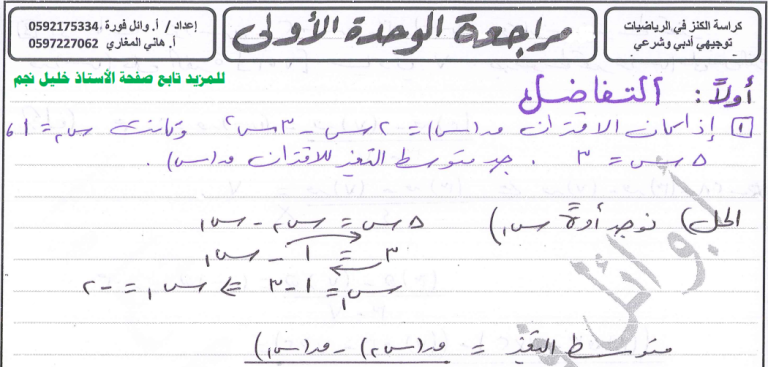 كراسة الكنز في الرياضيات
توجيهي أدبي وشرعي
مراجعة الوحدة الأولى
إعداد / أ. وائل فورة 0592175334
أ. هاني المغاري 0597227062
للمزيد تابع صفحة الأستاذ خليل نجم
أولاً: التفاضل
١ إذا كان الاقتران ق(س) = ٢س - ٣س٢ وكانت س٢ = ١ ،
∆س = ٣ . جد متوسط التغير للاقتران ق(س) .
الحل) نوجد أولاً س١) ∆س = س٢ - س١
٣ = ١ - س١
س١ = ١ - ٣ ⇐ س١ = -٢
متوسط التغير = ق(س٢) - ق(س١)
أبو وائل